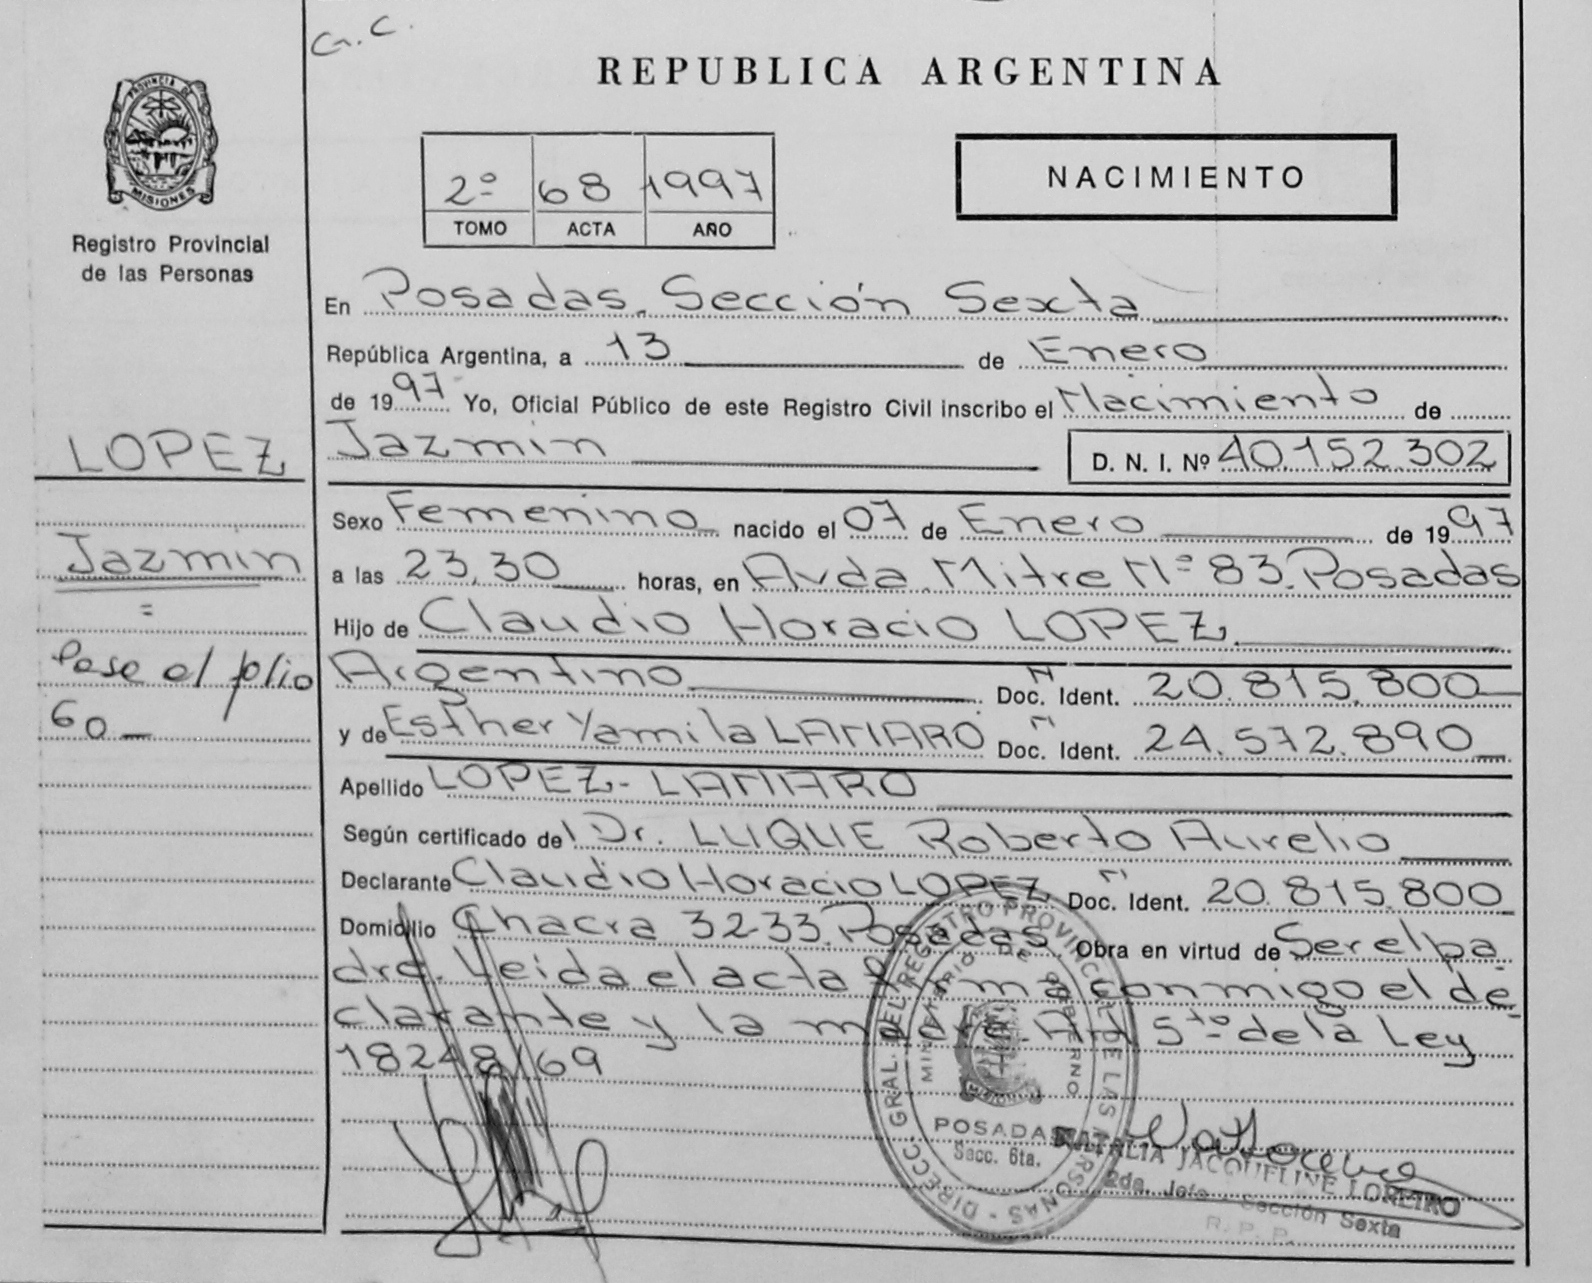 G. C.
PROVINCIA DE
MISIONES
Registro Provincial
de las Personas
REPUBLICA ARGENTINA
2º 68 1997
TOMO ACTA AÑO
NACIMIENTO
En Posadas. Sección Sexta
República Argentina, a 13 de Enero
de 1997 Yo, Oficial Público de este Registro Civil inscribo el Nacimiento de
LOPEZ
Jazmin D. N. I. Nº 40.152.302
Sexo Femenino nacido el 07 de Enero de 1997
Jazmin
=
a las 23,30 horas, en Avda. Mitre Nº 83. Posadas
Hijo de Claudio Horacio LOPEZ
Pase al folio
60
Argentino N Doc. Ident. 20.815.800
y de Esther Yamila LAMARO N Doc. Ident. 24.572.890
Apellido LOPEZ - LAMARO
Según certificado del Dr. LUQUE Roberto Aurelio
Declarante Claudio Horacio LOPEZ N Doc. Ident. 20.815.800
Domicilio Chacra 32-33. Posadas Obra en virtud de Ser el pa
dre. Leida el acta firma conmigo el de
clarante y la madre. Art 5to de la Ley
18248/69
DIRECC. GRAL. DEL REGISTRO PROVINCIAL DE LAS PERSONAS
MINISTERIO DE GOBIERNO
MISIONES
POSADAS
Secc. 6ta.
NATALIA JACQUELINE LOREIRO
2da. Jefe - Sección Sexta
R. P. P.